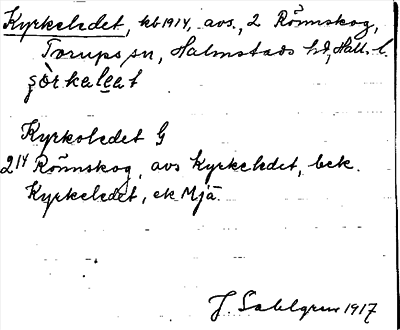 Kyrkeledet, kb 1914, avs., 2 Rönnskog,
Torups sn, Halmstads hd, Hall. l.
şòrkaleat
Kyrkoledet G
2 14 Rönnskog, avs Kyrkeledet, bek.
Kyrkeledet, ek Mjä.
J. Sahlgren 1917